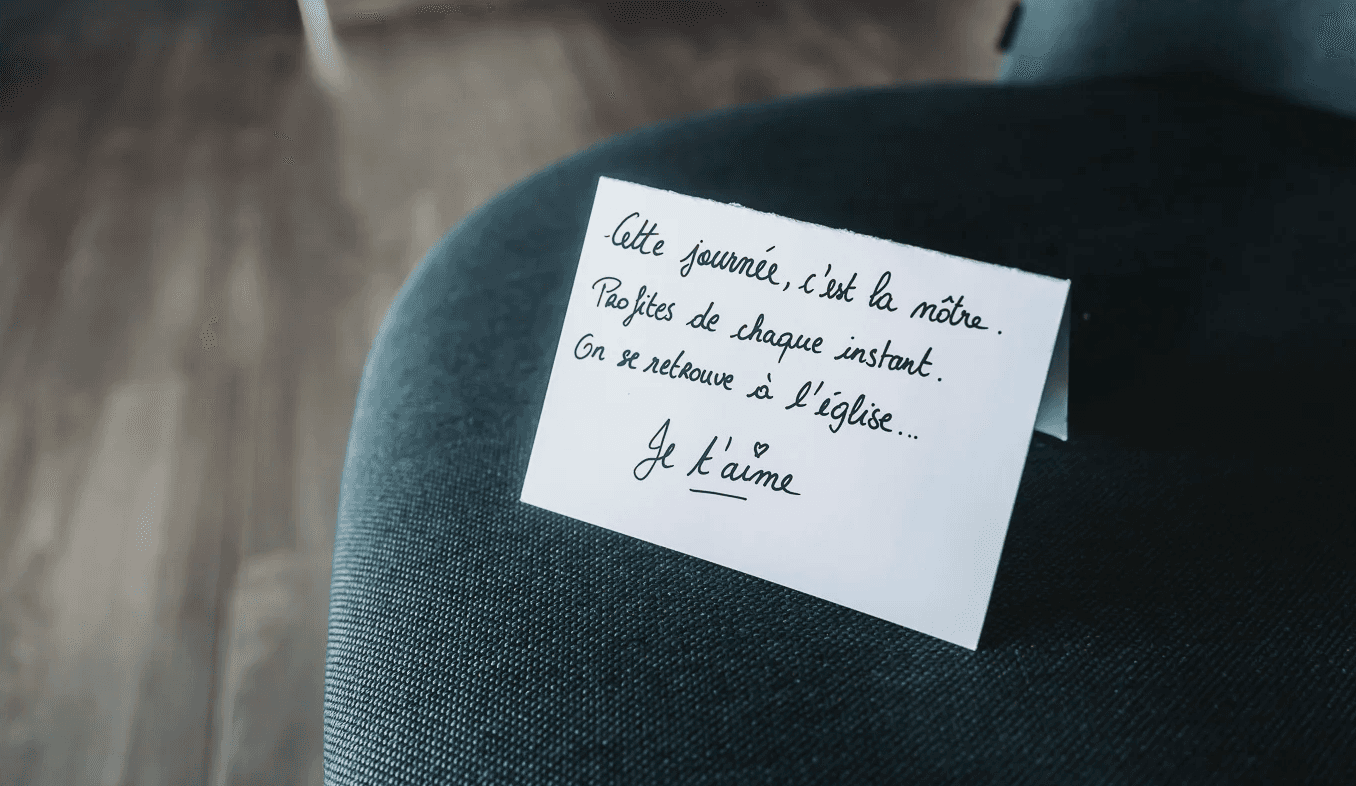 Cette journée, c'est la nôtre.
Profites de chaque instant.
On se retrouve à l'église...
Je t'aime